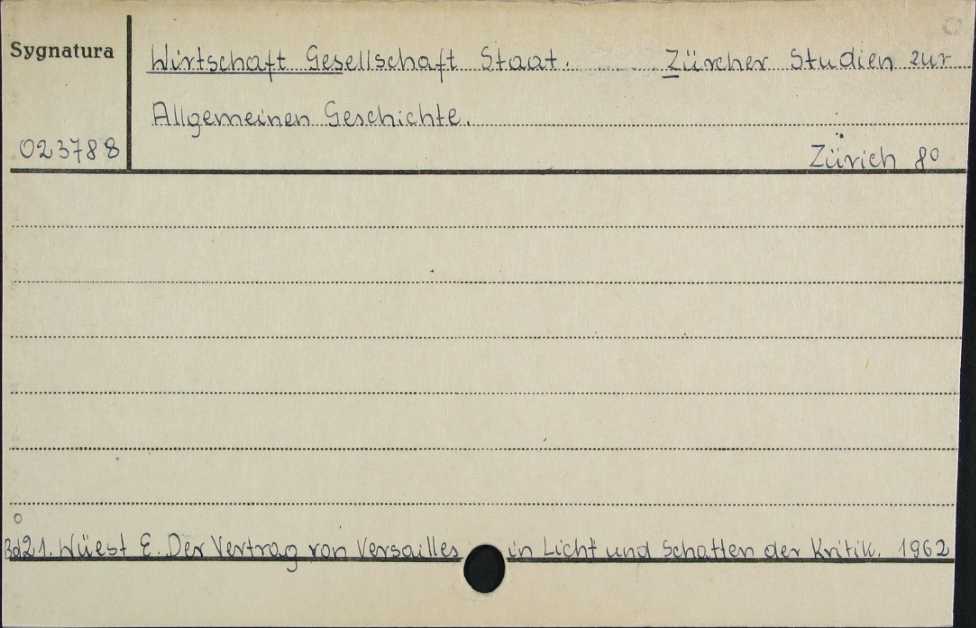 Sygnatura
Wirtschaft Gesellschaft Staat. Zürcher Studien zur
Allgemeinen Geschichte.
023788
Zürich 8o
Bd 21. Wüest E. Der Vertrag von Versailles in Licht und Schatten der Kritik. 1962